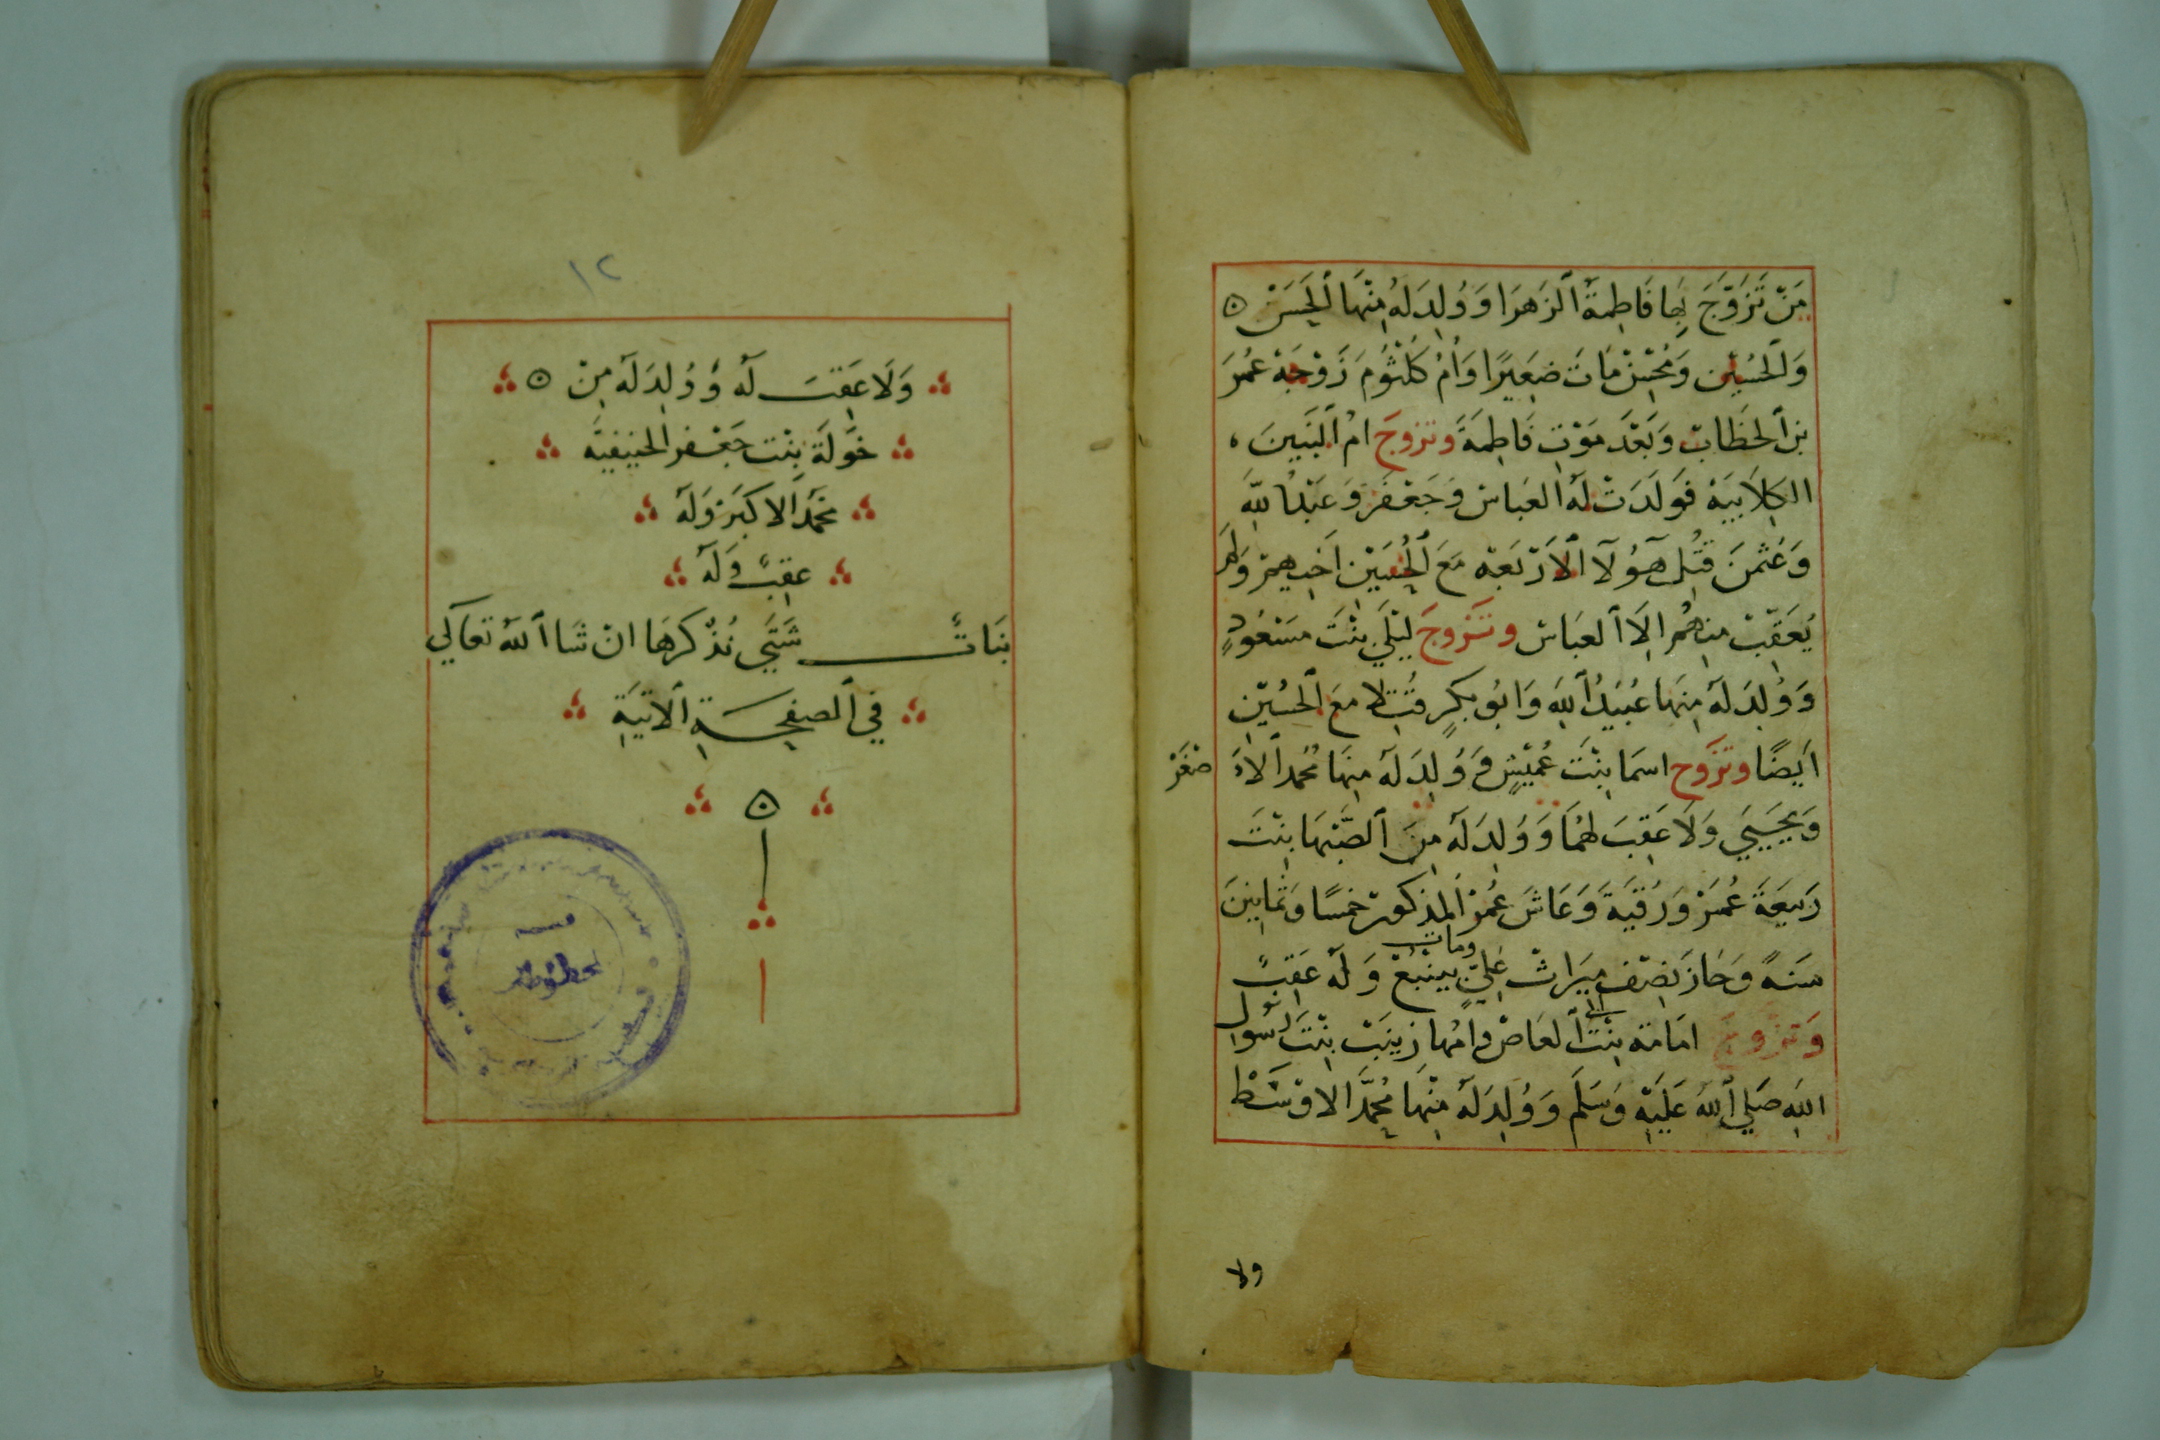 مَنْ تَزَوَّجَ بِهَا فَاطِمَةُ ٱلزَهرَا وَوُلِدَ لَهُ مِنْهَا ٱلحَسَنْ
وَٱلحُسَيْن وَمُحْسِنْ مَاتَ صَغِيرًا وَاُمُ كَلْثُوُمَ زَوْجَةْ عُمَرَ
بن ٱلخطَابْ وَبَعْدَ مَوْتِ فَاطِمَةَ وتزوجَ امُ ٱلبَنِينَ
الكِلَابِيَةْ فَوَلَدَتْ لَهُ العَبَاسْ وَجَعْفَرْ وَعَبْدُ اللهَ
وَعُثمٰنَ قُتِلَ هَؤُلَآ ٱلاَرْبَعَةْ مَعَ ٱلحُسَيْنِ اَخِيهِمْ وَلَمْ
يُعَقِّبْ مِنهُمْ اِلَا ٱلعَبَاسْ وتَزَوجَ لَيْلَي بِنْتَ مَسْعُودٍ
وَوُلِدَ لَهُ مِنهَا عُبَيْدُ ٱللهِ وَابُو بَكرٍ قُتِلَا معَ ٱلحُسَيْنِ
اَيضًا وتزَوج اسمَا بِنْتَ عُمَيْسٍ وَوُلِدَ لَهُ مِنهَا مُحَمد ٱلاَ صْغَرْ
وَيَحْيَي وَلَا عَقِبَ لهُمَا وَوُلِدَ لَهُ مِنَ ٱلصَّهْبَا بِنْتَ
رَبيعَةَ عُمَرْ وَرُقيَةَ وَعَاشَ عُمَرْ المذكورْ خمسًا وَثمَانِينَ
سَنَةً وَحَازَ نِصْفَ مِيرَاثْ عَلِيٍّ وماتَ بيَنْبُعْ وَلَهُ عَقِبً
وَتزَوجَ امَامَة بِنْتَ ابي ٱلعَاصْ وَامُهَا زَينَبْ بِنْتَ رَسُول
اللهِ صَلي ٱللهُ عَلَيْهِ وَسَلَم وَوُلِدَ لَهُ مِنْهَا مُحَمَّدَ الاوْسَطْ
ولا
١٢
وَلَا عَقِبَ لَهُ وَوُلِدَ لَهُ مِنْ
خَوْلَةَ بِنْت جَعْفر الحَنِيفِيَّه
مُحَمَدَ الاكبَرْ وَلَهُ
عَقِبً وَلَهُ
بَنَاتً شَتَي نذْكرهَا انْ شَا ٱللهُ تعَالَي
في ٱلصفحَةِ ٱلاتيَةِ
قسم
المخطوطات